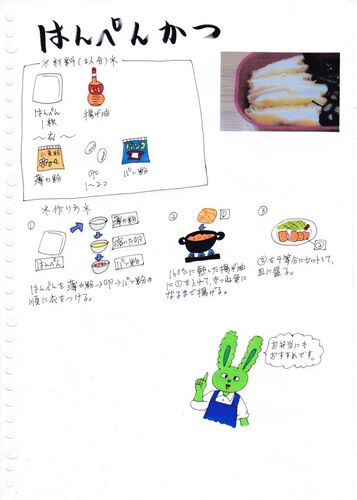 はんぺんカツ
※材料(2人分)※
はんぺん
1枚
揚げ油
～衣～
小麦粉
パンコ
薄力粉
卵
1～2コ
パン粉
※作り方※
①
薄力粉
溶いた卵
はんぺん
パン粉
はんぺんを薄力粉→卵→パン粉の
順に衣をつける。
②
①
160℃に熱した揚げ油
に①を入れて、きつね色に
なるまで揚げる。
③
②
②を4等分にカットして、
皿に盛る。
お弁当にも
おすすめです。